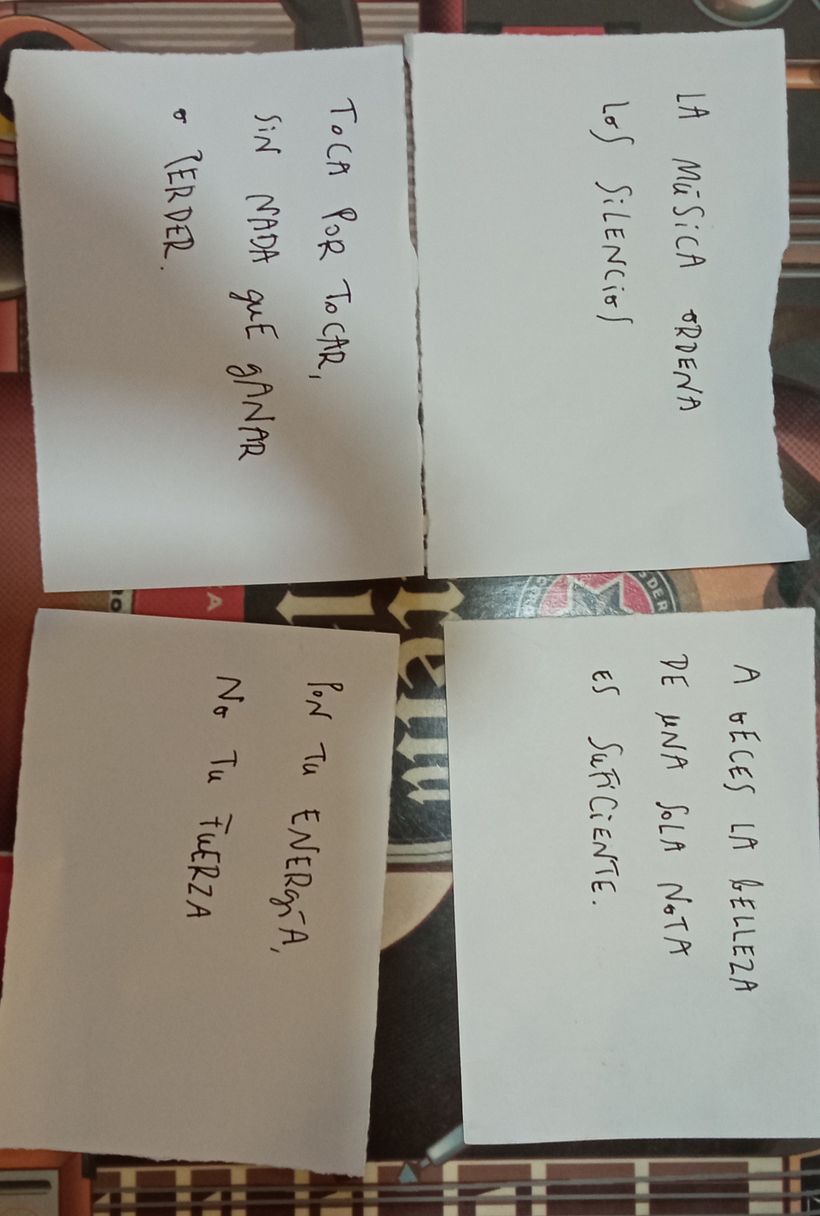 LA MÚSICA ORDENA
LOS SILENCIOS
TOCA POR TOCAR,
SIN NADA QUE GANAR
O PERDER.
A VECES LA BELLEZA
DE UNA SOLA NOTA
ES SUFICIENTE.
PON TU ENERGÍA,
NO TU FUERZA